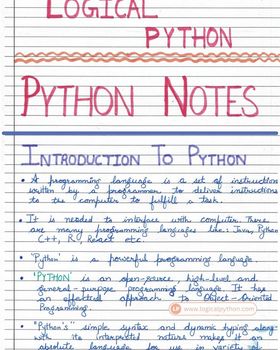 LOGICAL
PYTHON
PYTHON NOTES
INTRODUCTION TO PYTHON
• A programming language is a set of instructions
written by a programmer to deliver instructions
to the computer to fulfill a task.
• It is needed to interface with computer. There
are many programming languages like: Java, Python
C++, R, React etc
• 'Python' is a powerful programming language
• 'PYTHON' is an open-source, high-level and
general-purpose programming language. It has
an effective approach to Object-Oriented
Programming.
www.logicalpython.com
• "Python's" simple syntax and dynamic typing along
with its interpreted nature makes it an
absolute language for use in variety of